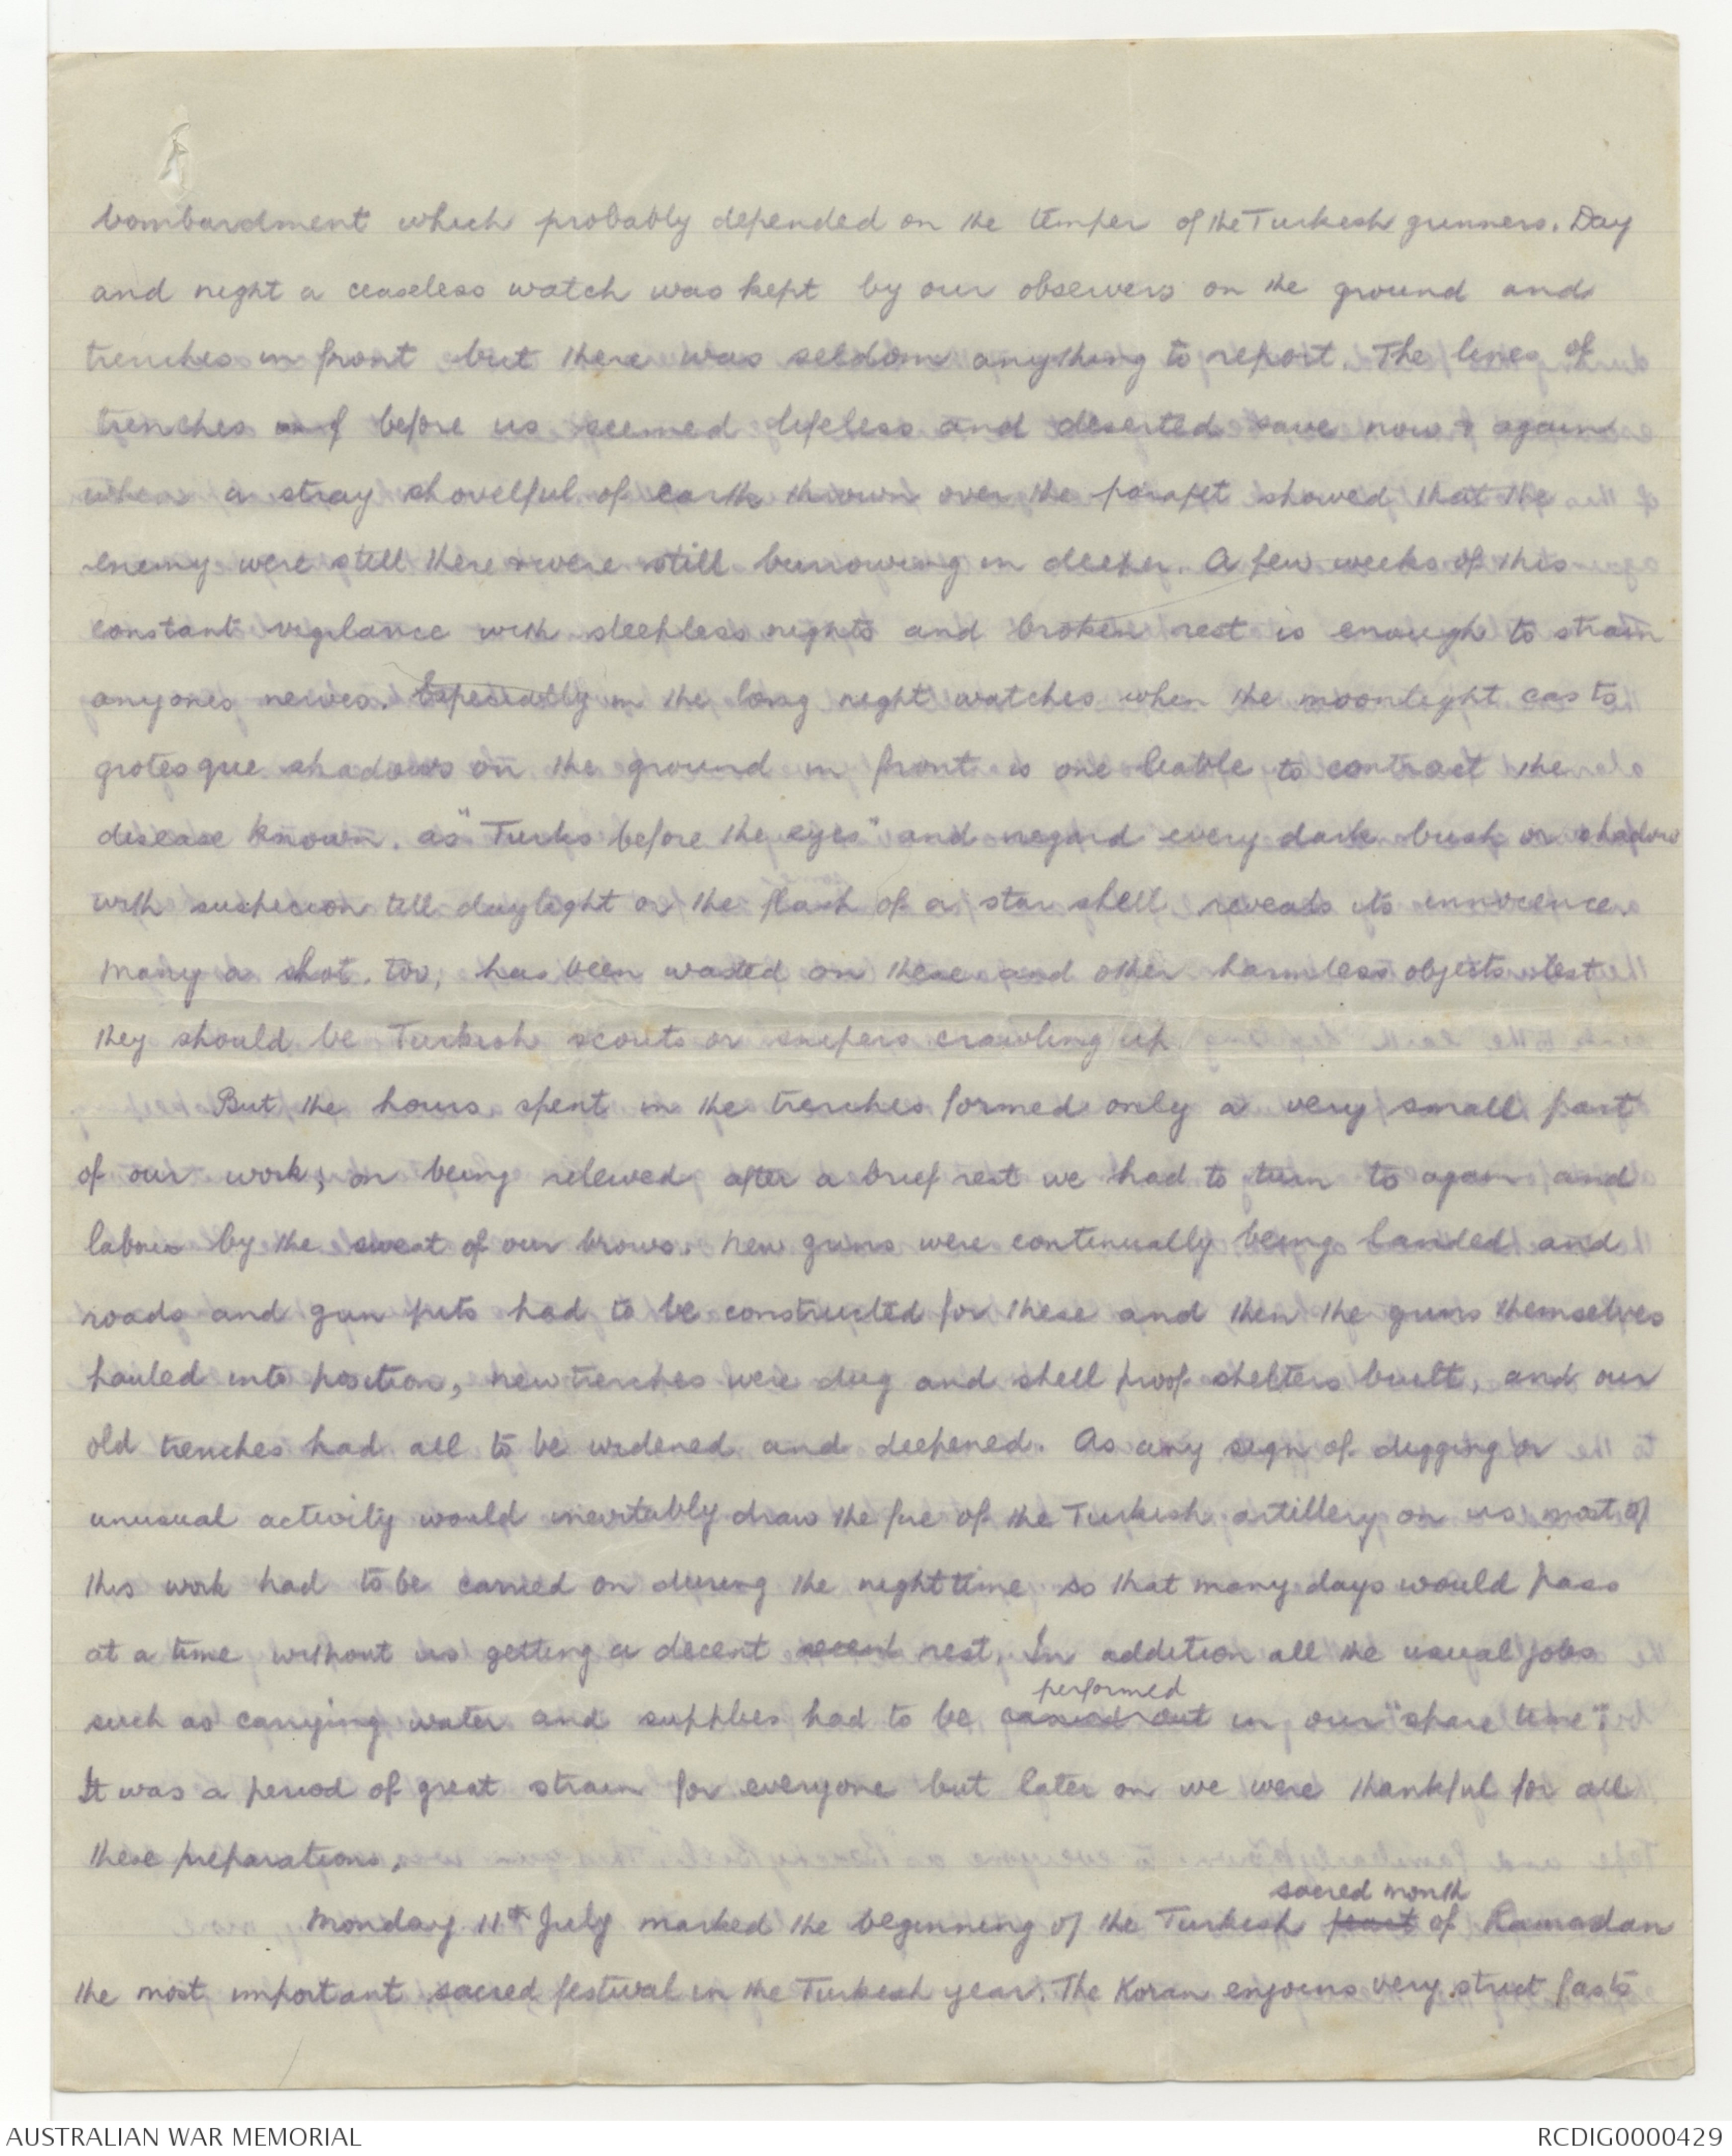 bombardment which probably depended on the temper of the Turkish gunners. Day
and night a ceaseless watch was kept by our observers on the ground and
trenches in front but there was seldom anything to report. The lines of
trenches before us seemed lifeless and deserted save now & again
when a stray shovelful of earth thrown over the parapet showed that the
enemy were still there & were still burrowing in deeper. A few weeks of this
constant vigilance with sleepless nights and broken rest is enough to strain
anyones nerves. Especially in the long night watches when the moonlight casts
grotesque shadows on the ground in front is one liable to contract the
disease known as "Turks before the eyes" and regard every dark bush or shadow
with suspicion till daylight or the flash of a star shell reveals its innocence.
Many a shot, too, has been wasted on these and other harmless objects lest
they should be Turkish scouts or snipers crawling up.
But the hours spent in the trenches formed only a very small part
of our work; on being relieved after a brief rest we had to turn to again and
labour by the sweat of our brows. New guns were continually being landed and
roads and gun pits had to be constructed for these and then the guns themselves
hauled into position, new trenches were dug and shell proof shelters built, and our
old trenches had all to be widened and deepened. As any sign of digging or
unusual activity would inevitably draw the fire of the Turkish artillery on us most of
this work had to be carried on during the night time so that many days would pass
at a time without us getting a decent rest. In addition all the usual jobs
performed
such as carrying water and supplies had to be carried out in our "spare time".
It was a period of great strain for everyone but later on we were thankful for all
these preparations.
sacred month
Monday 11th July marked the beginning of the Turkish feast of Ramadan
the most important sacred festival in the Turkish year. The Koran enjoins very strict fasts
AUSTRALIAN WAR MEMORIAL
RCDIG0000429